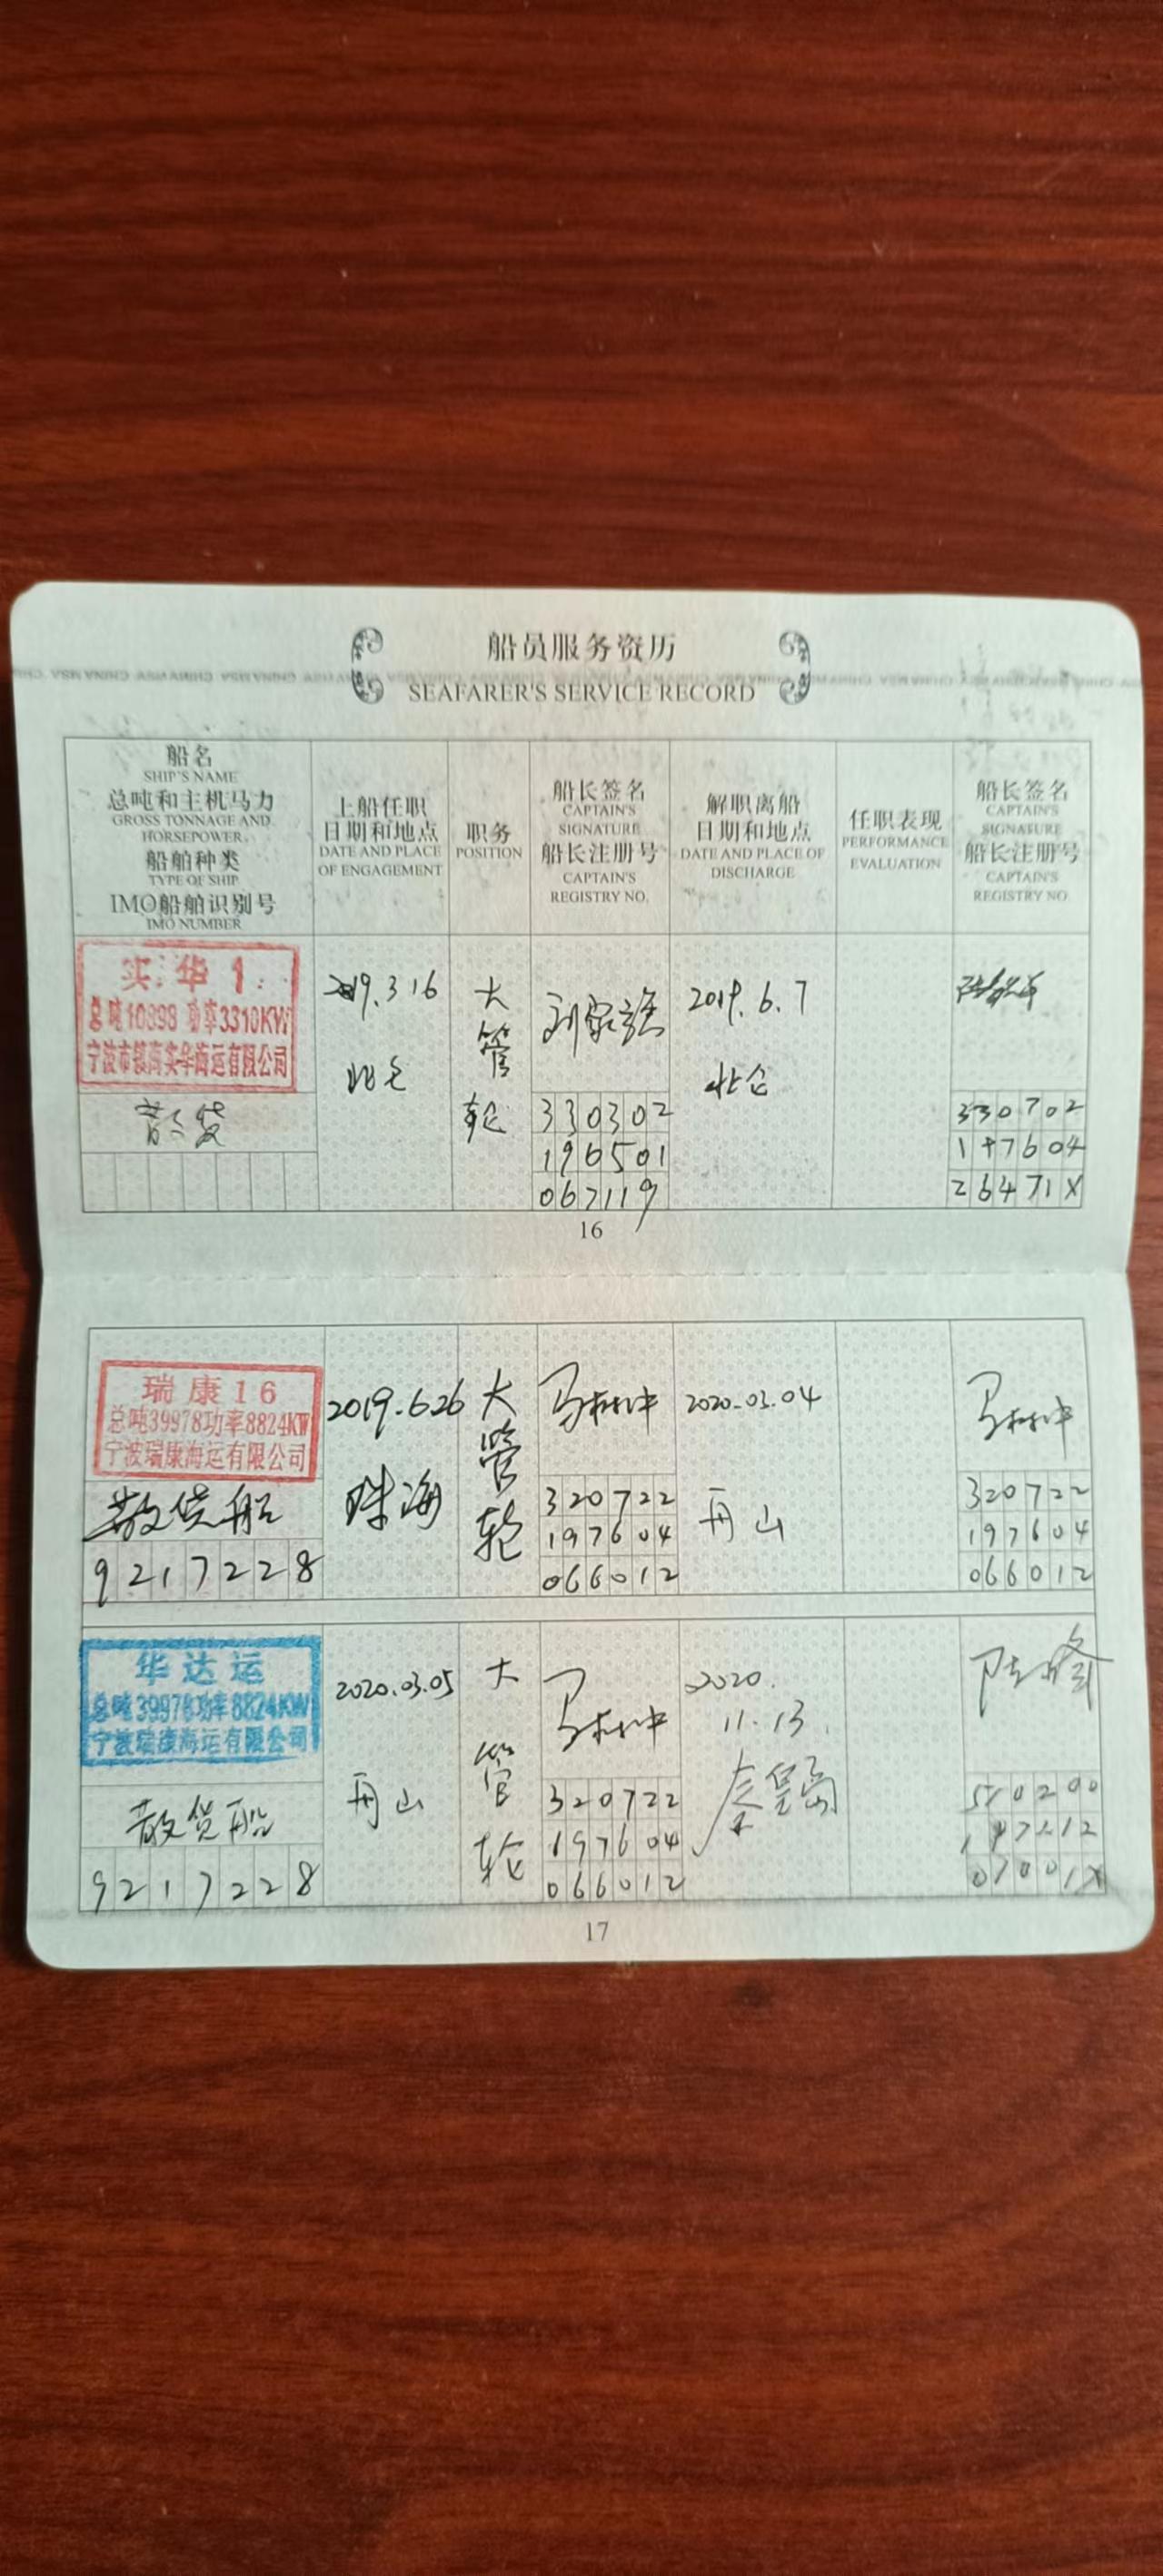 船员服务资历
SEAFARER'S SERVICE RECORD
船名
SHIP'S NAME
总吨和主机马力
GROSS TONNAGE AND
HORSEPOWER
船舶种类
TYPE OF SHIP
IMO船舶识别号
IMO NUMBER
上船任职
日期和地点
DATE AND PLACE
OF ENGAGEMENT
职务
POSITION
船长签名
CAPTAIN'S
SIGNATURE
船长注册号
CAPTAIN'S
REGISTRY NO.
解职离船
日期和地点
DATE AND PLACE OF
DISCHARGE
任职表现
PERFORMANCE
EVALUATION
船长签名
CAPTAIN'S
SIGNATURE
船长注册号
CAPTAIN'S
REGISTRY NO
实华1
总吨10898 功率3310KW
宁波市镇海实华海运有限公司
散货
2019.3 16
北仑
大
管
轮
330302
196501
067119
2019.6.7
北仑
330702
197604
26471X
16
瑞康16
总吨39978功率8824KW
宁波瑞康海运有限公司
散货船
9217228
2019.6.26
珠海
大
管
轮
马树冲
320722
197604
066012
2020.03.04
舟山
马树冲
320722
197604
066012
华达运
总吨39978功率8824KW
宁波瑞康海运有限公司
散货船
9217228
2020.03.05
舟山
大
管
轮
马树冲
320722
197604
066012
2020.
11.13
秦皇岛
陆峰
17